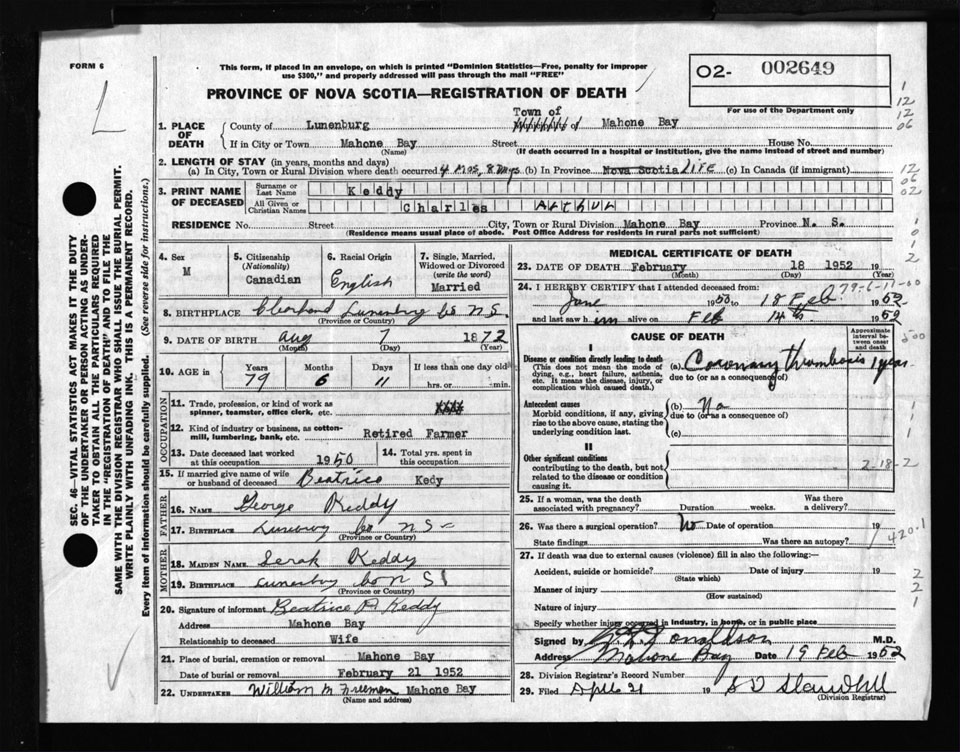 FORM 6
This form, if placed in an envelope, on which is printed "Dominion Statistics—Free, penalty for improper
use $300," and properly addressed will pass through the mail "FREE"
PROVINCE OF NOVA SCOTIA—REGISTRATION OF DEATH
02- 002649
For use of the Department only
1. PLACE OF DEATH
County of Lunenburg Town of Mahone Bay
If in City or Town Mahone Bay Street House No.
(Name) (If death occurred in a hospital or institution, give the name instead of street and number)
2. LENGTH OF STAY (in years, months and days)
(a) In City, Town or Rural Division where death occurred 4 Mos, 8 Days (b) In Province Nova Scotia Life (c) In Canada (if immigrant)
3. PRINT NAME OF DECEASED
Surname or Last Name Keddy
All Given or Christian Names Charles Arthur
RESIDENCE No. Street City, Town or Rural Division Mahone Bay Province N. S.
(Residence means usual place of abode. Post Office Address for residents in rural parts not sufficient)
4. Sex M
5. Citizenship (Nationality) Canadian
6. Racial Origin English
7. Single, Married, Widowed or Divorced (write the word) Married
8. BIRTHPLACE Lunenburg Co N.S.
(Province or Country)
9. DATE OF BIRTH Aug 7 1872
(Month) (Day) (Year)
10. AGE in Years 79 Months 6 Days 11 If less than one day old hrs. or min.
OCCUPATION
11. Trade, profession, or kind of work as spinner, teamster, office clerk, etc.
12. Kind of industry or business, as cotton-mill, lumbering, bank, etc. Retired Farmer
13. Date deceased last worked at this occupation 1950
14. Total yrs. spent in this occupation
15. If married give name of wife or husband of deceased Beatrice Kedy
FATHER
16. Name George Keddy
17. BIRTHPLACE Co N S
(Province or Country)
MOTHER
18. MAIDEN NAME Serah Keddy
19. BIRTHPLACE Lunenburg Co N S
(Province or Country)
20. Signature of informant Beatrice P. Keddy
Address Mahone Bay
Relationship to deceased Wife
21. Place of burial, cremation or removal Mahone Bay
Date of burial or removal February 21 1952
22. UNDERTAKER William M Freeman Mahone Bay
(Name and address)
MEDICAL CERTIFICATE OF DEATH
23. DATE OF DEATH February 18 1952
(Month) (Day) (Year)
79-6-11-00
24. I HEREBY CERTIFY that I attended deceased from:
June 1950 to 18 Feb 1952
and last saw him alive on Feb 14th 1952
CAUSE OF DEATH
Approximate interval between onset and death
I
Disease or condition directly leading to death
(This does not mean the mode of dying, e.g., heart failure, asthenia, etc. It means the disease, injury, or complication which caused death.)
(a) Coronary thrombosis 1 year
due to (or as a consequence of)
Antecedent causes
Morbid conditions, if any, giving rise to the above cause, stating the underlying condition last.
(b) No
due to (or as a consequence of)
(c)
II
Other significant conditions
contributing to the death, but not related to the disease or condition causing it.
2-18-2
25. If a woman, was the death associated with pregnancy? Duration weeks. Was there a delivery?
26. Was there a surgical operation? No Date of operation 19
State findings Was there an autopsy?
420-1
27. If death was due to external causes (violence) fill in also the following:—
Accident, suicide or homicide? Date of injury 19
(State which)
Manner of injury
(How sustained)
Nature of injury
Specify whether injury occurred in industry, in home, or in public place
Signed by Donaldson M.D.
Address Mahone Bay Date 19 Feb 1952
28. Division Registrar's Record Number
29. Filed 21 19
(Division Registrar)
SEC. 46—VITAL STATISTICS ACT MAKES IT THE DUTY
OF THE UNDERTAKER OR PERSON ACTING AS UNDER-
TAKER TO OBTAIN ALL THE PARTICULARS REQUIRED
IN THE "REGISTRATION OF DEATH" AND TO FILE THE
SAME WITH THE DIVISION REGISTRAR WHO SHALL ISSUE THE BURIAL PERMIT.
WRITE PLAINLY WITH UNFADING INK. THIS IS A PERMANENT RECORD.
Every item of information should be carefully supplied. (See reverse side for instructions.)